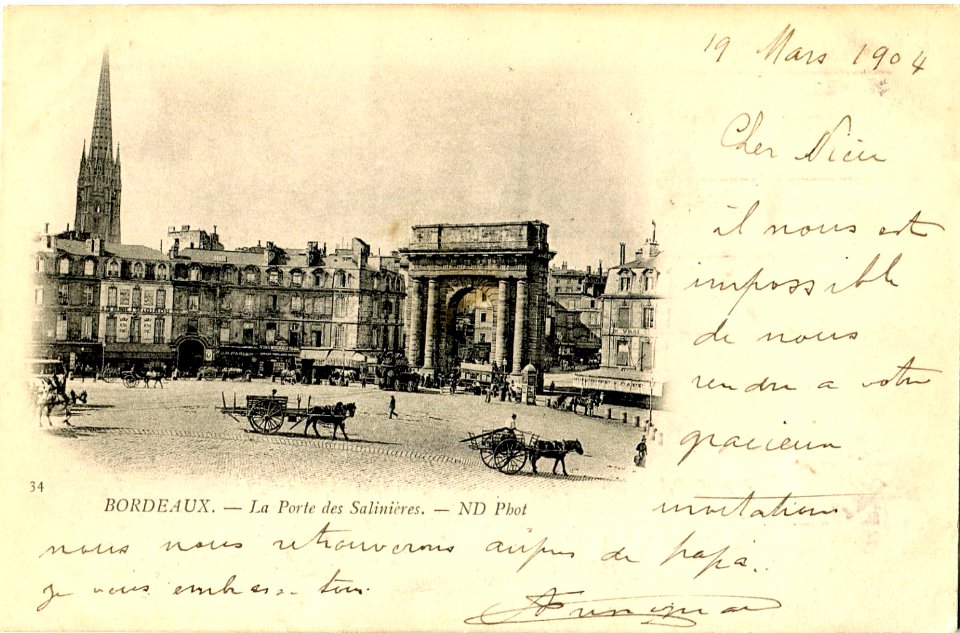 19 Mars 1904
Cher
il nous est
impossible
de nous
rendre a votre
gracieux
34
BORDEAUX. — La Porte des Salinières. — ND Phot
invitations
nous nous retrouverons de papa.
je vous embrasse tous.